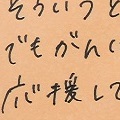 そういうと
でもがんい
応援して